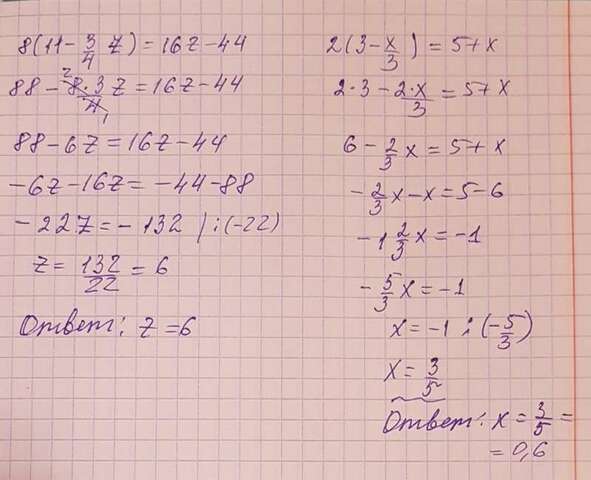 8(11 - 3/4 z) = 16z - 44
88 - 8·3z/4 = 16z - 44
2
1
88 - 6z = 16z - 44
-6z - 16z = -44 - 88
-22z = -132 | : (-22)
z = 132/22 = 6
Ответ: z = 6
2(3 - x/3) = 5 + x
2·3 - 2·x/3 = 5 + x
6 - 2/3 x = 5 + x
-2/3 x - x = 5 - 6
-1 2/3 x = -1
-5/3 x = -1
x = -1 : (-5/3)
x = 3/5
Ответ: x = 3/5 =
= 0,6